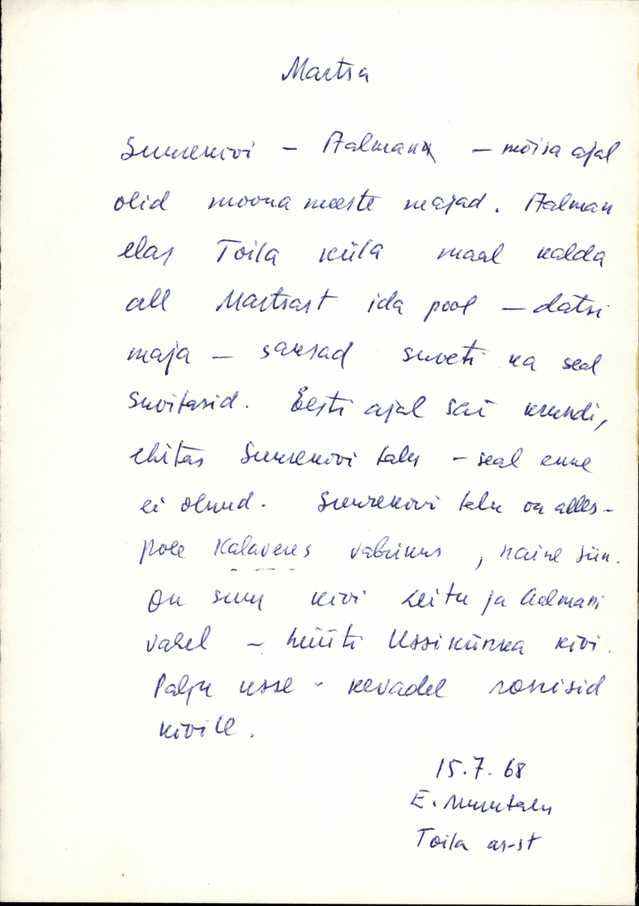 Martsa
Suurekivi – Aalmann – mõisa ajal
olid moonameeste majad. Aalman
elas Toila küla maal kalda
all Martsast ida pool – datsi
maja – saksad suveti ka seal
suvitasid. Eesti ajal sai krundi,
ehitas Suurekivi talu – seal enne
ei olnud. Suurekivi talu on alles –
pole Kalaveres vabrikus, naine siin.
On suur kivi Leitu ja Aalmani
vahel – hüüti Ussikünka kivi.
Palju usse - kevadel ronisid
kivile.
15.7.68
E.
Toila as-st